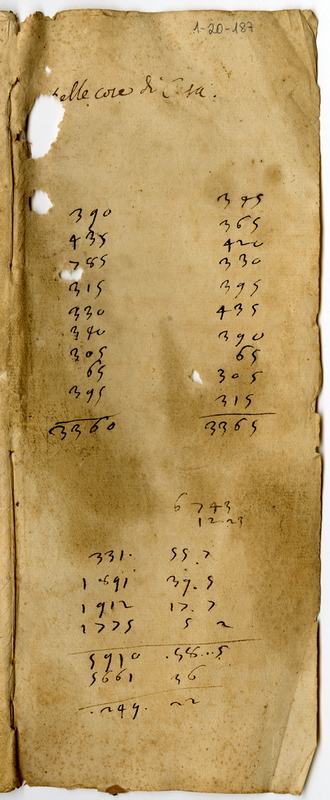 1-20-187
delle cose di Casa.
390 345
435 365
785 420
315 330
330 395
340 435
305 390
65 65
395 305
315
3360 3365
6 743
12.23
331. 55.7
1891 39.5
1912 17.7
1775 5 2
5910 .58..5
5661 36
.249. 22